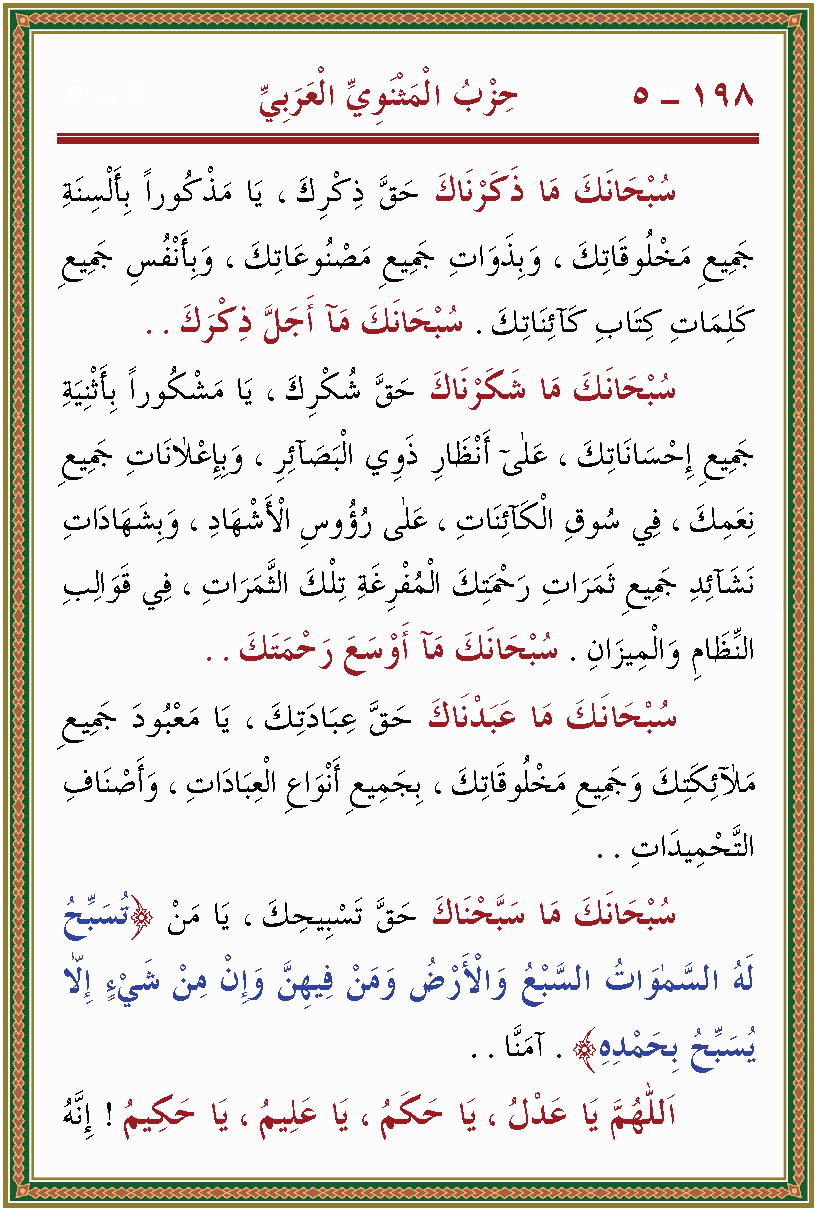 ١٩٨ ـ ٥ حِزْبُ الْمَثْنَوِيِّ الْعَرَبِيِّ
سُبْحَانَكَ مَا ذَكَرْنَاكَ حَقَّ ذِكْرِكَ ، يَا مَذْكُوراً بِأَلْسِنَةِ
جَمِيعِ مَخْلُوقَاتِكَ ، وَبِذَوَاتِ جَمِيعِ مَصْنُوعَاتِكَ ، وَبِأَنْفُسِ جَمِيعِ
كَلِمَاتِ كِتَابِ كَآئِنَاتِكَ . سُبْحَانَكَ مَآ أَجَلَّ ذِكْرَكَ . .
سُبْحَانَكَ مَا شَكَرْنَاكَ حَقَّ شُكْرِكَ ، يَا مَشْكُوراً بِأَثْنِيَةِ
جَمِيعِ إِحْسَانَاتِكَ ، عَلٰىٓ أَنْظَارِ ذَوِي الْبَصَآئِرِ ، وَبِإِعْلَانَاتِ جَمِيعِ
نِعَمِكَ ، فِي سُوقِ الْكَآئِنَاتِ ، عَلٰى رُؤُوسِ الْأَشْهَادِ ، وَبِشَهَادَاتِ
نَشَآئِدِ جَمِيعِ ثَمَرَاتِ رَحْمَتِكَ الْمُفْرِغَةِ تِلْكَ الثَّمَرَاتِ ، فِي قَوَالِبِ
النِّظَامِ وَالْمِيزَانِ . سُبْحَانَكَ مَآ أَوْسَعَ رَحْمَتَكَ . .
سُبْحَانَكَ مَا عَبَدْنَاكَ حَقَّ عِبَادَتِكَ ، يَا مَعْبُودَ جَمِيعِ
مَلَآئِكَتِكَ وَجَمِيعِ مَخْلُوقَاتِكَ ، بِجَمِيعِ أَنْوَاعِ الْعِبَادَاتِ ، وَأَصْنَافِ
التَّحْمِيدَاتِ . .
سُبْحَانَكَ مَا سَبَّحْنَاكَ حَقَّ تَسْبِيحِكَ ، يَا مَنْ ﴿تُسَبِّحُ
لَهُ السَّمٰوَاتُ السَّبْعُ وَالْأَرْضُ وَمَنْ فِيهِنَّ وَإِنْ مِنْ شَيْءٍ إِلَّا
يُسَبِّحُ بِحَمْدِهِ﴾ . آمَنَّا . .
اَللّٰهُمَّ يَا عَدْلُ ، يَا حَكَمُ ، يَا عَلِيمُ ، يَا حَكِيمُ ! إِنَّهُ